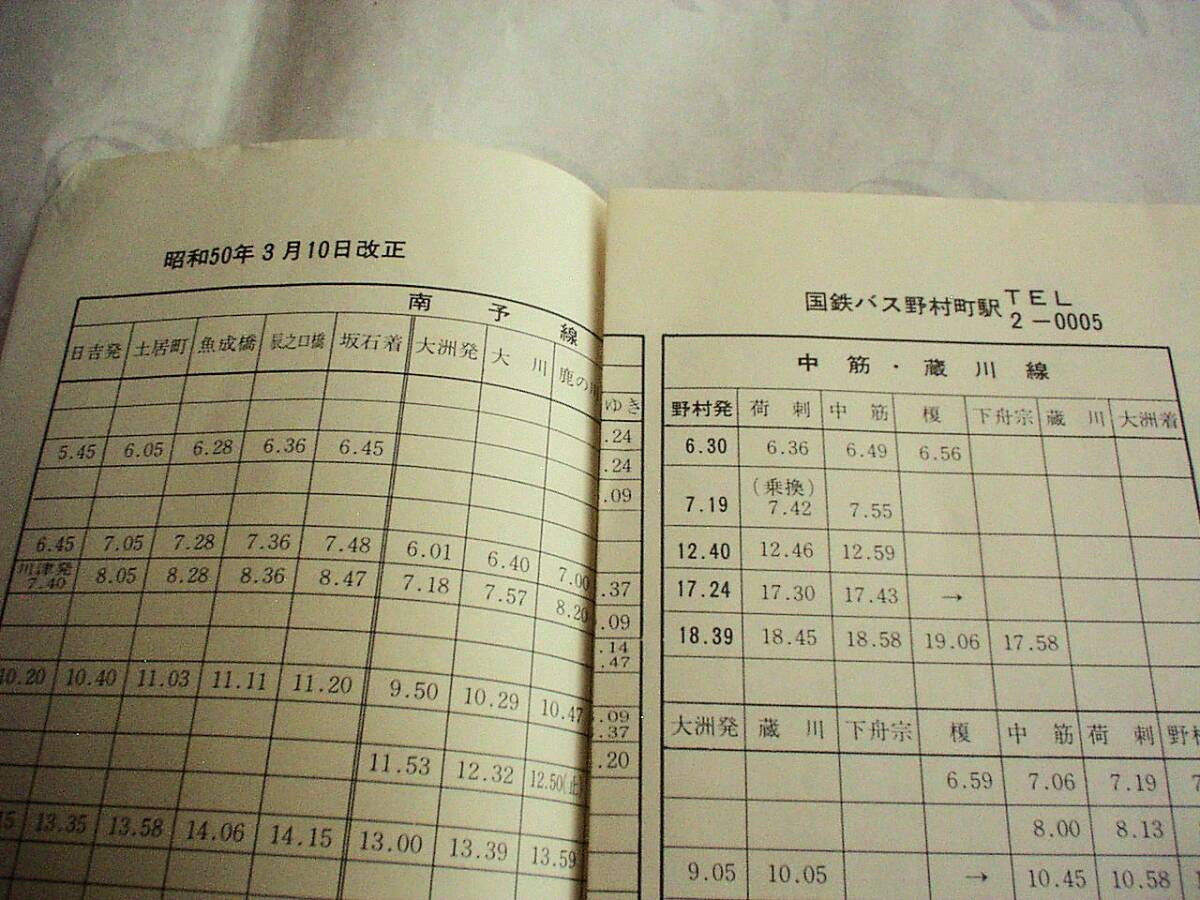 昭和50年3月10日改正
南予線
日吉発 土居町 魚成橋 辰之口橋 坂石着 大洲発 大川 鹿の川
5.45 6.05 6.28 6.36 6.45
6.45 7.05 7.28 7.36 7.48 6.01 6.40 7.00
川津発
7.40 8.05 8.28 8.36 8.47 7.18 7.57 8.20
10.20 10.40 11.03 11.11 11.20 9.50 10.29 10.47
11.53 12.32 12.50(止)
13.35 13.58 14.06 14.15 13.00 13.39 13.59
ゆき
.24
.24
.09
.37
.09
.14
.47
.09
.37
.20
国鉄バス野村町駅 TEL
2-0005
中筋・蔵川線
野村発 荷刺 中筋 榎 下舟宗 蔵川 大洲着
6.30 6.36 6.49 6.56
(乗換)
7.19 7.42 7.55
12.40 12.46 12.59
17.24 17.30 17.43 →
18.39 18.45 18.58 19.06 17.58
大洲発 蔵川 下舟宗 榎 中筋 荷刺 野村
6.59 7.06 7.19
8.00 8.13
9.05 10.05 → 10.45 10.58